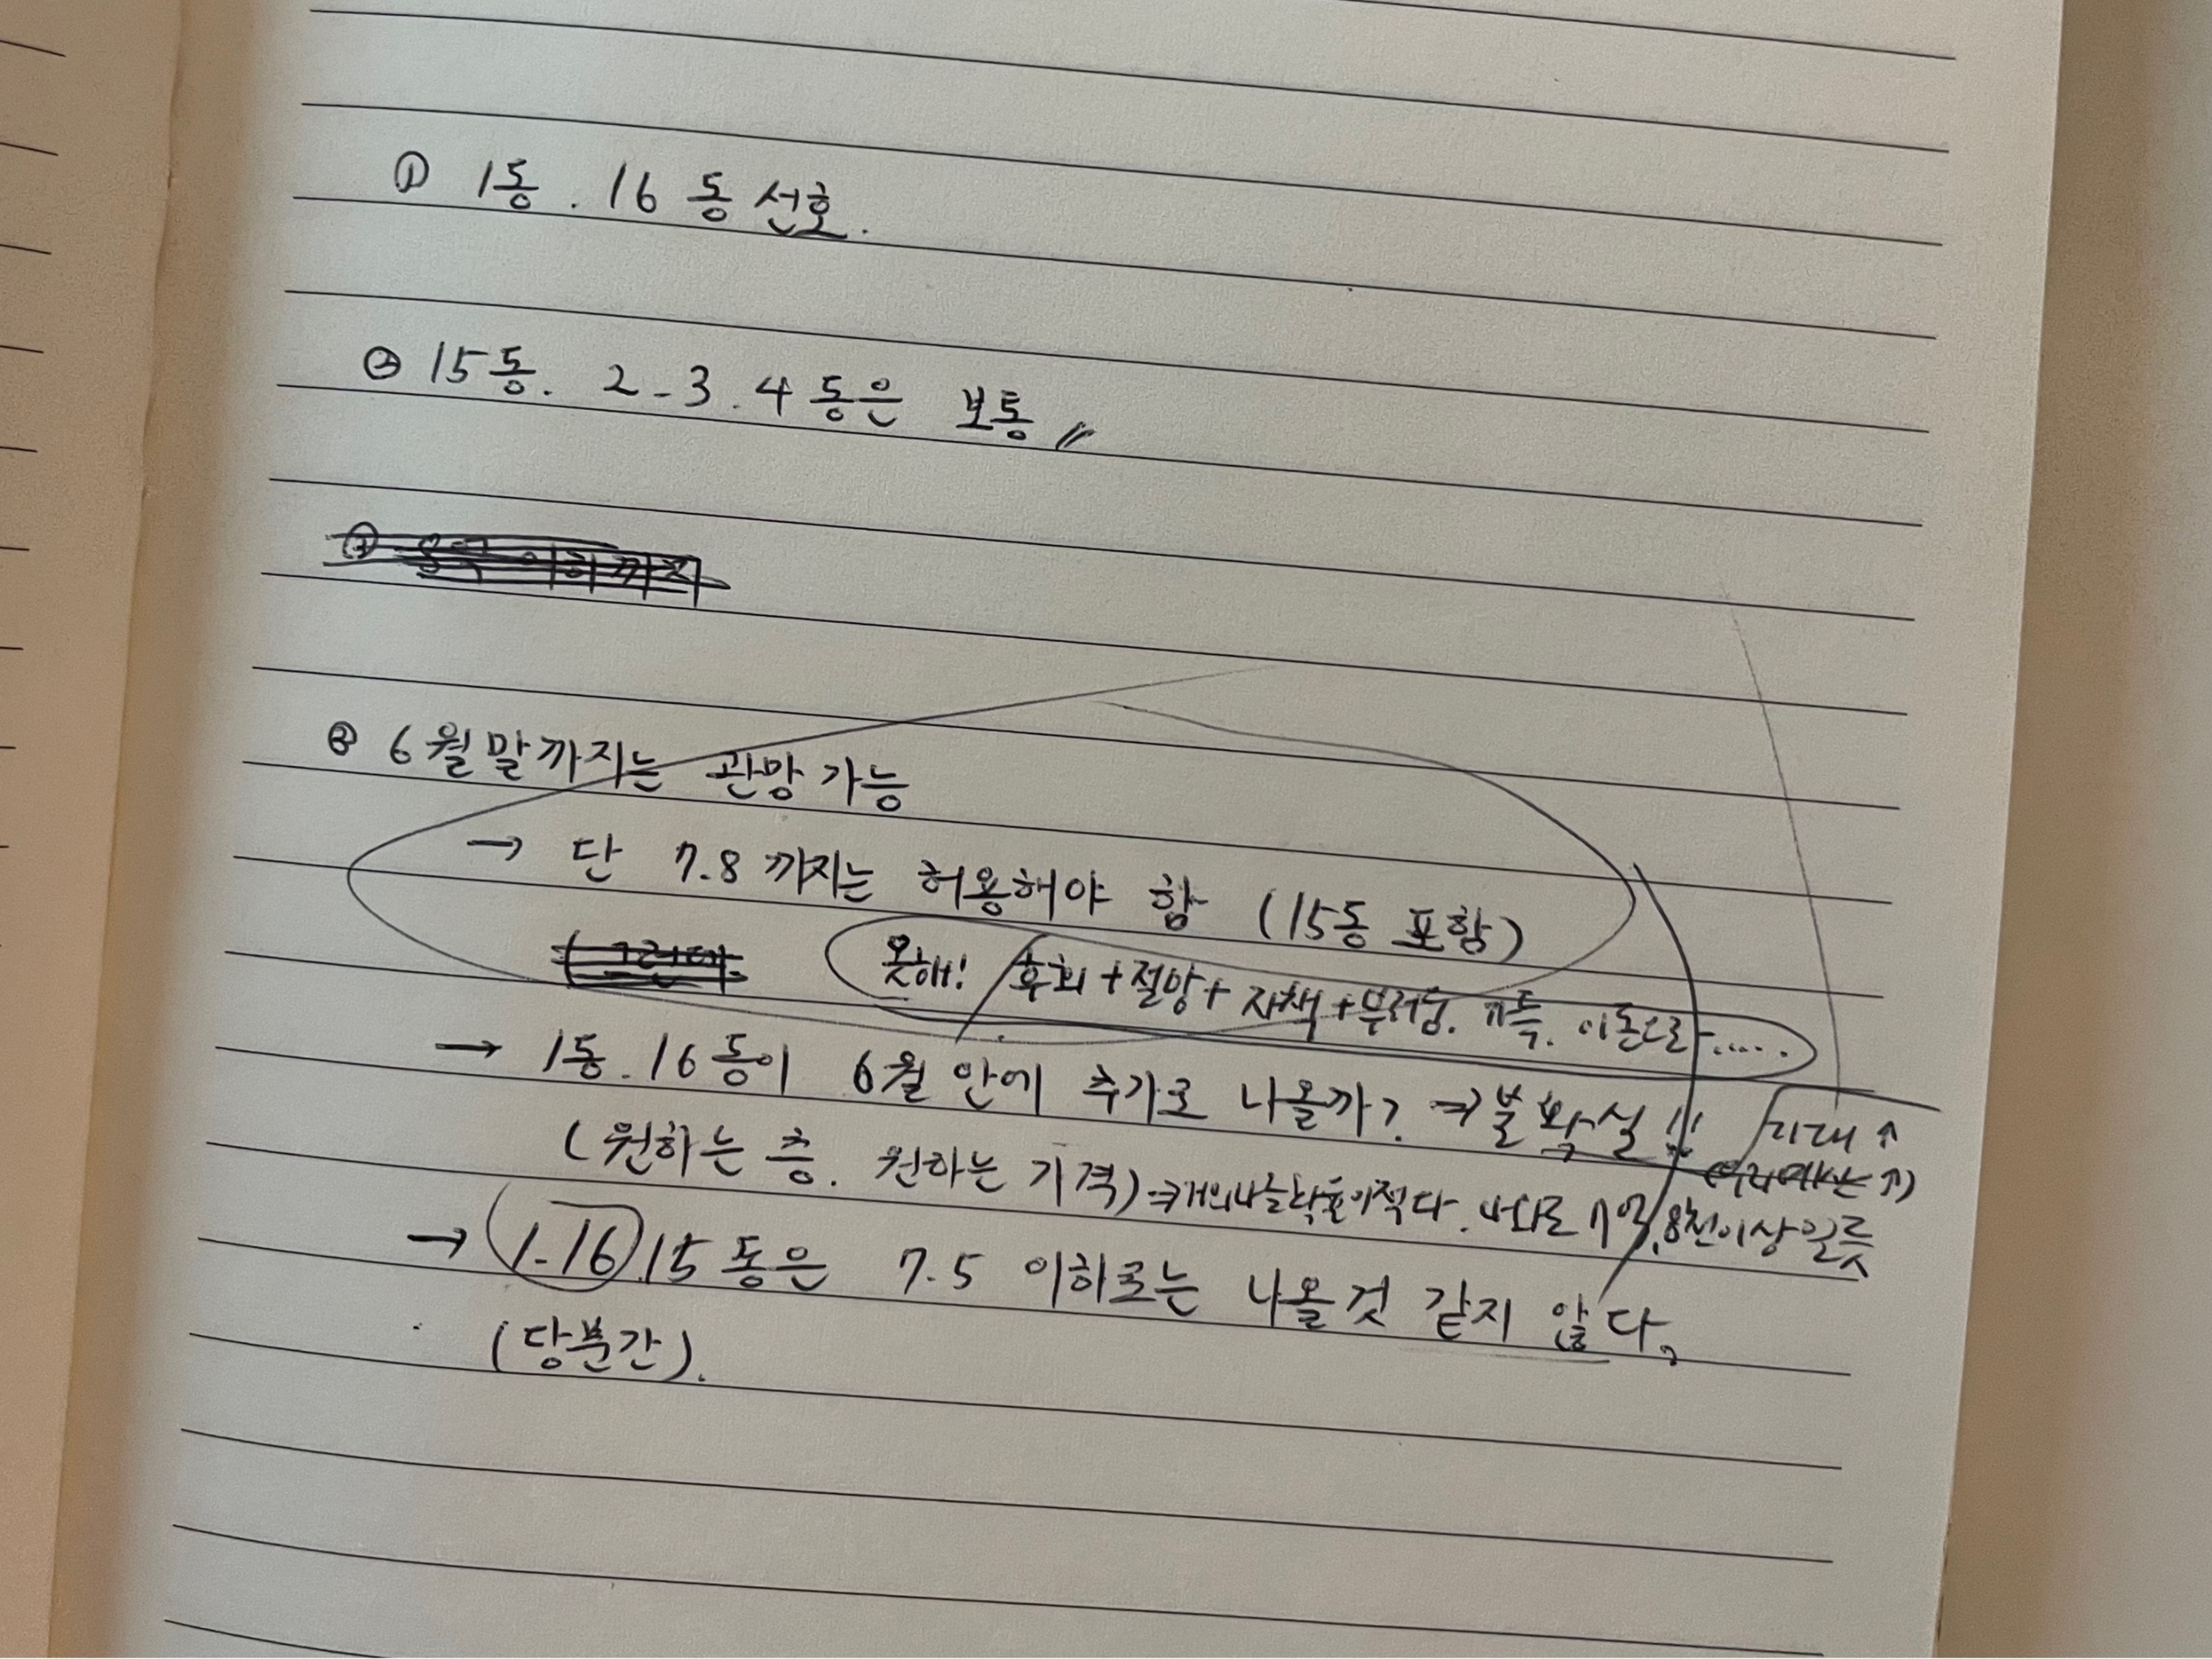 ① 1동. 16동 선호.
② 15동. 2-3.4동은 보통〃
③ 6월말까지는 관망 가능
→ 단 7.8까지는 허용해야 함 (15동 포함)
못해! 후회+절망+자책+부러움. 이돈으로.....
→ 1동.16동이 6월 안에 추가로 나올까? ⇒ 불확실!! 기대↑
(원하는 층. 원하는 가격) 확률이적다. 7억.8천이상일듯
→ 1-16.15동은 7.5 이하로는 나올것 같지 않다.
(당분간).